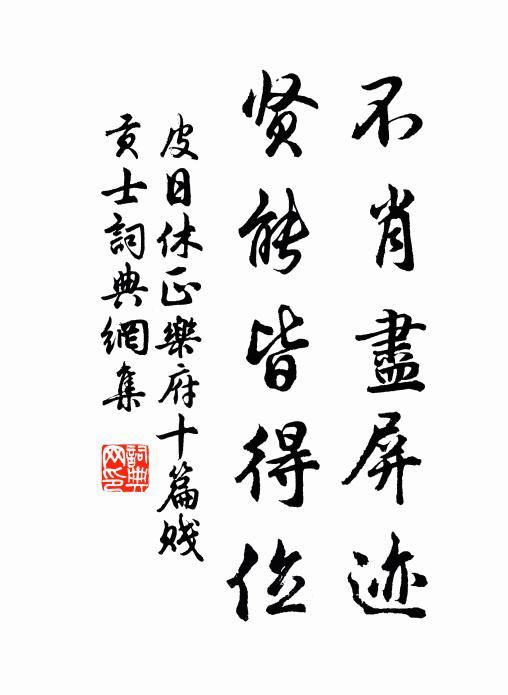 不肖盡屏迹
贤能皆得位
皮日休正樂府十篇贱
贡士詞典網集
詞典网印